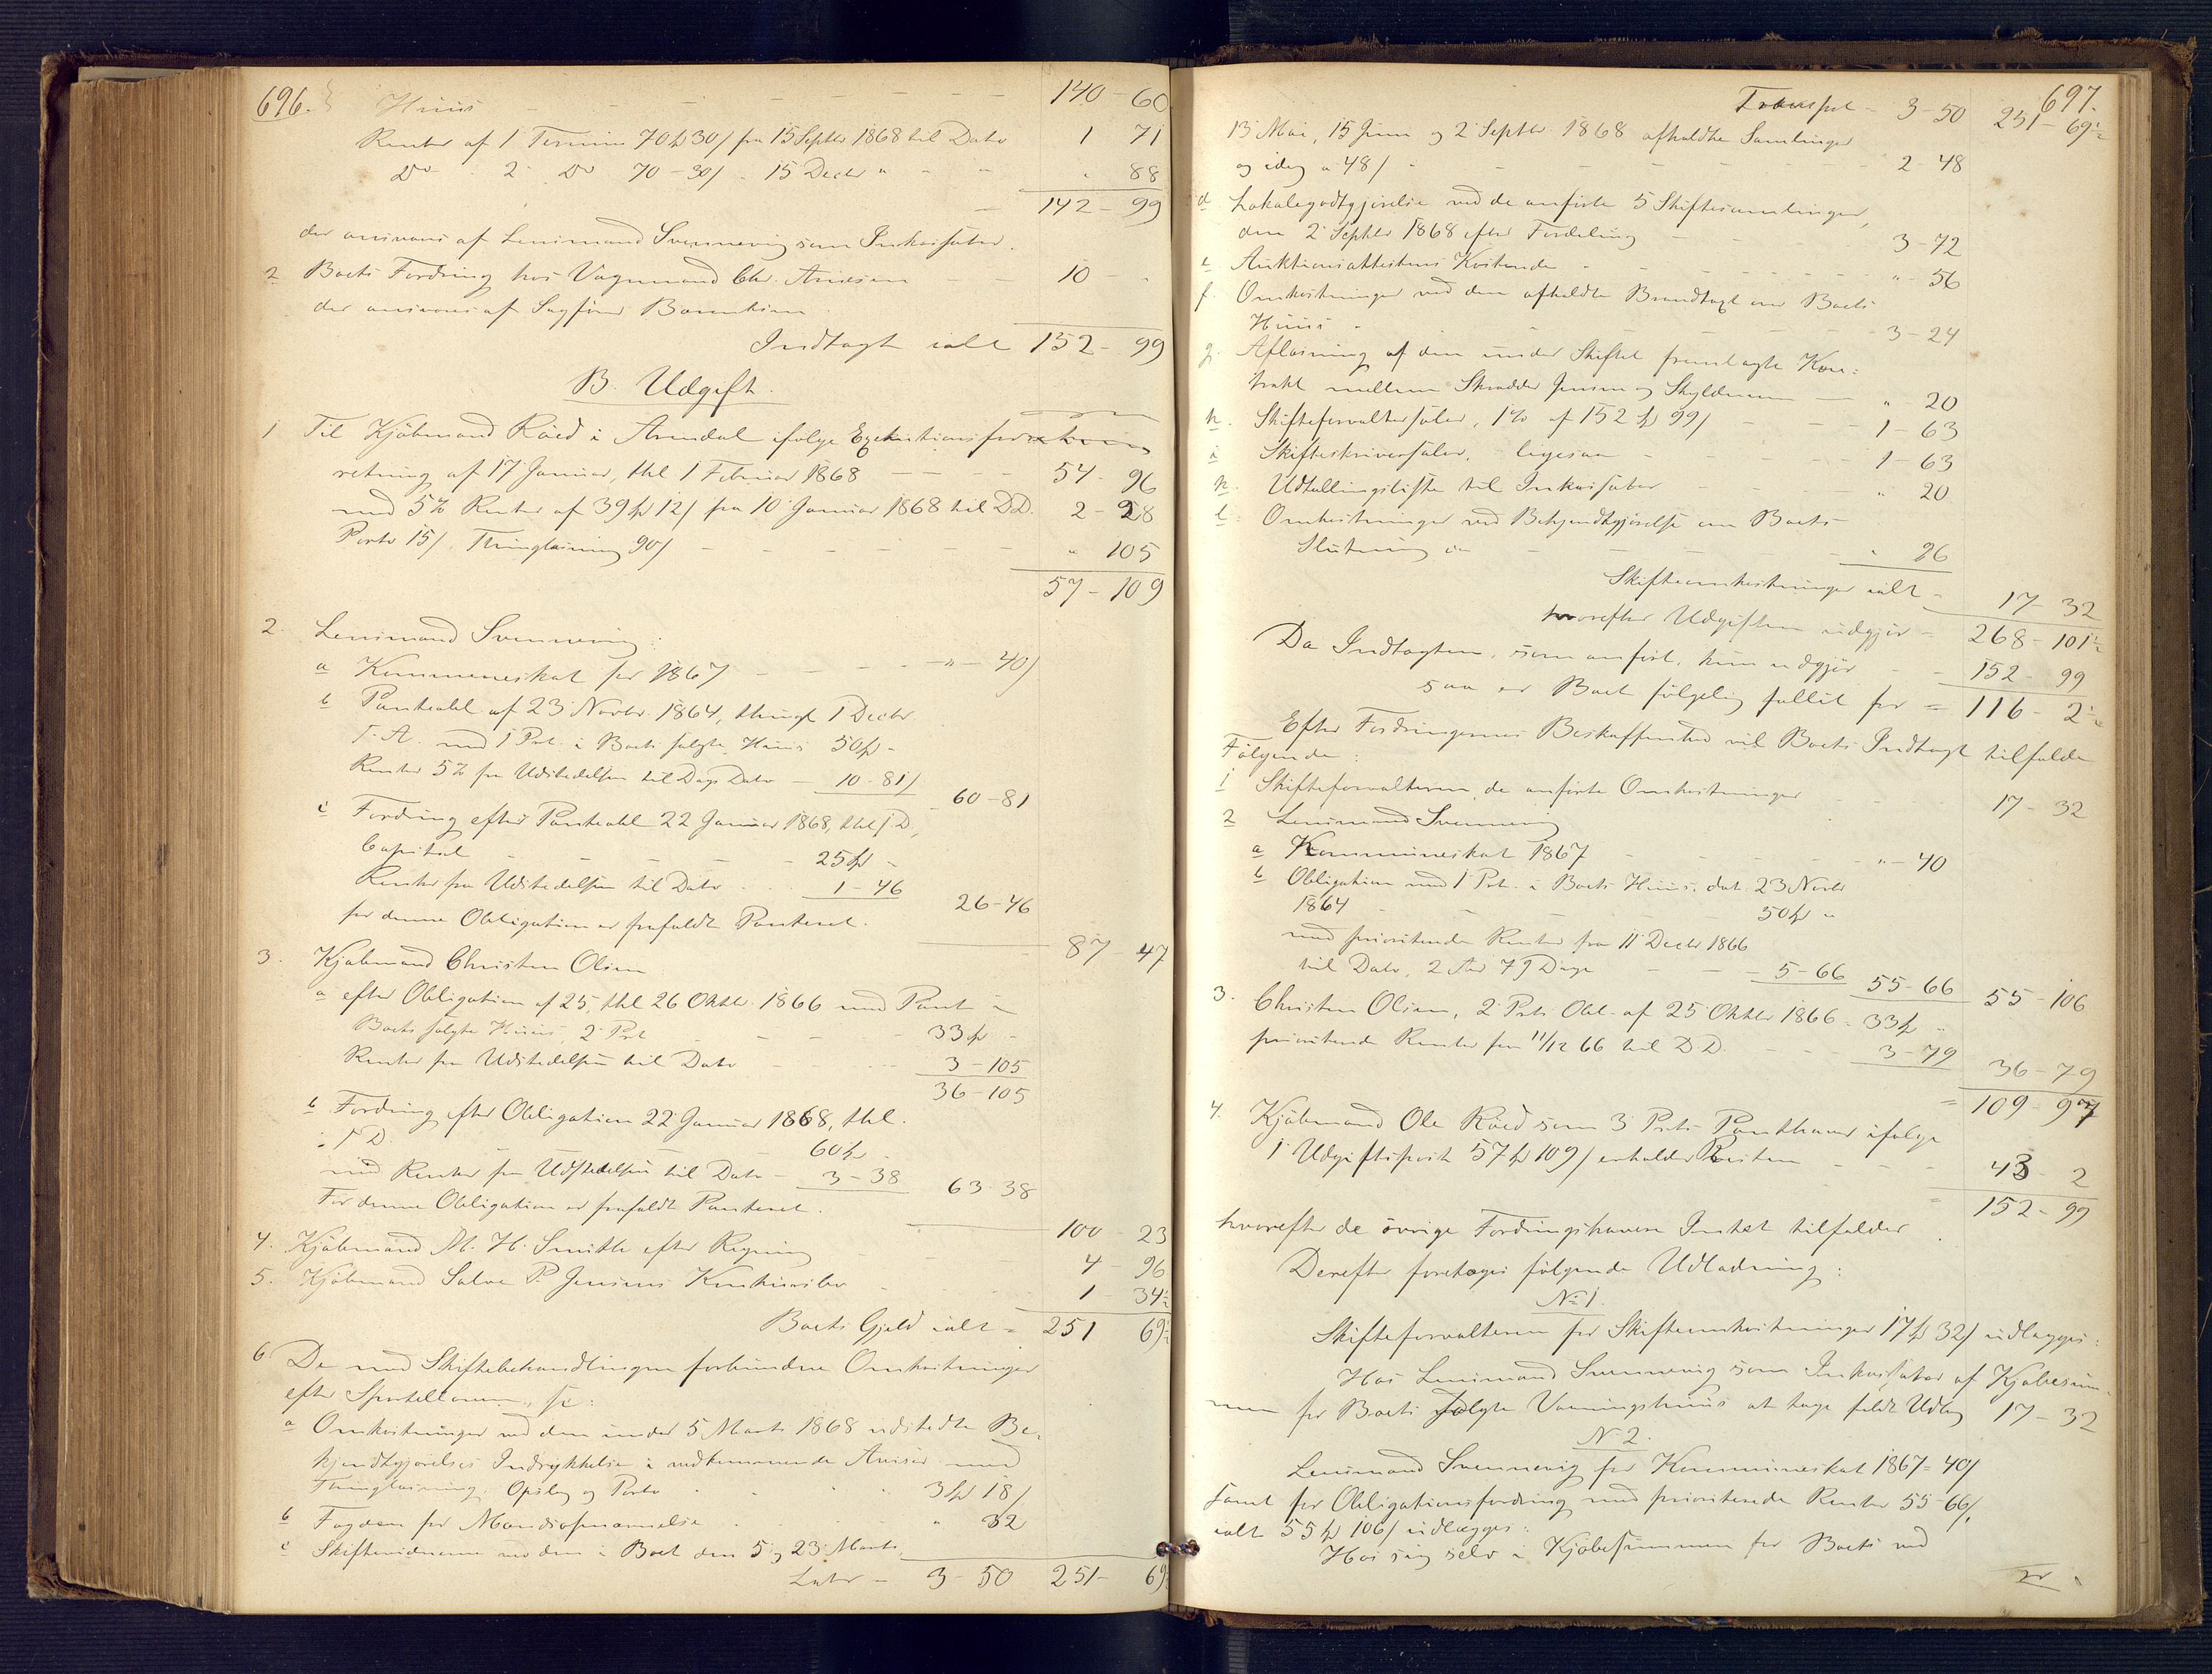 696.
Huus - - - - - - - 140 - 60
Renter af 1 Termin 70 Spd 30 s fra 15 Septbr 1868 til Dato 1 71
Do 2 Do 70 - 30 s " 15 Decbr " - - " 88
- 142 - 99
der ansvares af Lensmand Svennevig som Inkassator.
2 Boets Fordring hos Vognmand Chr. Andersen - - 10 -
der ansvares af Sagfører Barenthsen
Indtægt ialt 152 - 99
B. Udgift.
1 Til Kjøbmand Røed i Arendal ifølge Exekutionsfor
retning af 17 Januar, thl 1 Februar 1868 - - - - 54 - 96
med 5% Renter af 39 Spd 12 s fra 10 Januar 1868 til DD. 2 - 28
Porto 15 s, Thinglæsning 90 s - - - - - - " 105
57 - 109
2. Lensmand Svennevig:
a Kommuneskat for 1867 - - - - " - 40 s
b Panteobl af 23 Novbr. 1864, thingl 1 Decbr
s. A. med 1 Prt. i Boets solgte Huus 50 Spd -
Renter 5% fra Udstedelsen til Dags Dato - 10 - 81 s 60 - 81
c Fordring efter Panteobl 22 Januar 1868, thl s. D,
Capital - - - - - 25 Spd -
Renter fra Udstedelsen til Dato - 1 - 46 26 - 46
for denne Obligation er frafaldt Panteret. - 87 - 47
3. Kjøbmand Christen Olsen
a efter Obligation af 25, thl 26 Oktbr. 1866 med Pant i
Boets solgte Huus, 2 Prt - - - 33 Spd -
Renter fra Udstedelsen til Dato - - - 3 - 105
36 - 105
b Fordring efter Obligation 22 Januar 1868, thl.
s D. - - - 60 Spd -
med Renter fra Udstedelsen til Dato - 3 - 38 63 - 38
For denne Obligation er frafaldt Panteret.
100 - 23
4. Kjøbmand M. H. Smith efter Regning - - 4 - 96
5. Kjøbmand Salve P. Jensens Konkursbo - - - 1 34½
Boets Gjæld ialt = 251 69½
6 De med Skiftebehandlingen forbundne Omkostninger
efter Sportelloven, s:
a Omkostninger ved den under 5 Marts 1868 udstedte Be-
kjendtgjørelses Indrykkelse i vedkommende Aviser med
Thinglæsning, Opslag og Porto - - - 3 Spd 18 s
b Fogden for Mandsopnævnelse - - " 32
c Skiftevidnerne ved den i Boet den 5 og 23 Marts,
Latus - 3 - 50 251 - 69½
697.
Transport - 3 - 50 251 - 69½
13 Mai, 15 Juni og 2 Septbr. 1868 afholdte Samlinger
og idag a 48 s - - - - - 2 - 48
d Lokalegodtgjørelse ved de anførte 5 Skiftesamlinger,
den 2 Septbr 1868 efter Fordeling - - - 3 - 72
e Auktionsattestens Kostende - - - - " 56
f. Omkostninger ved den afholdte Brandtaxt over Boets
Huus - - - - - 3 - 24
g. Afløsning af den under Skiftet fremlagte Kon:
trakt mellem Skrædder Jensen og Skyldneren - " 20
h. Skifteforvaltersalær, 1% af 152 Spd 99 s - - 1 - 63
i Skifteskriversalær, ligesaa - - - 1 - 63
k. Udtællingsliste til Inkassator - - - " 20
l. Omkostninger ved Bekjendtgjørelse om Boets
Slutning - - - - " 26
Skifteomkostninger ialt - 17 - 32
hvorefter Udgiften udgjør = 268 - 101½
Da Indtægten, som anført, kun udgjør - 152 - 99
saa er Boet følgelig fallit for = 116 - 2½
Efter Fordringernes Beskaffenhed vil Boets Indtægt tilfalde
Følgende:
1 Skifteforvalteren, de anførte Omkostninger - - 17 - 32
2 Lensmand Svennevig
a Kommuneskat 1867 - - - - " - 40
b Obligation med 1 Prt. i Boets Huus, dat. 23 Novbr
1864 - - - - 50 Spd "
med prioriterede Renter fra 11 Decbr 1866
til Dato, 2 Aar 79 Dage - - - 5 - 66 55 - 66 55 - 106
3. Christen Olsen, 2 Prts Obl. af 25 Oktbr 1866 - 33 Spd "
prioriterede Renter fra 11/12 66 til DD. - - 3 - 79 36 - 79
= 109 - 97
4. Kjøbmand Ole Røed som 3 Prts Panthaver ifølge
1 Udgiftspost 57 Spd 109 s erholder Resten - - - 43 - 2
= 152 - 99
hvorefter de øvrige Fordringshavere Intet tilfalder.
Derefter foretoges følgende Udlodning:
No 1.
Skifteforvalteren for Skifteomkostninger 17 Spd 32 s udlægges:
Hos Lensmand Svennevig som Inkassator af Kjøbesum-
men for Boets solgte Vaaningshuus at tage fuldt Udlæg 17 - 32
N 2.
Lensmand Svennevig for Kommuneskat 1867 = 40 s
samt for Obligationsfordring med prioriterede Renter 55 - 66 s,
ialt 55 Spd 106 s udlægges:
Hos sig selv i Kjøbesummen for Boets ved